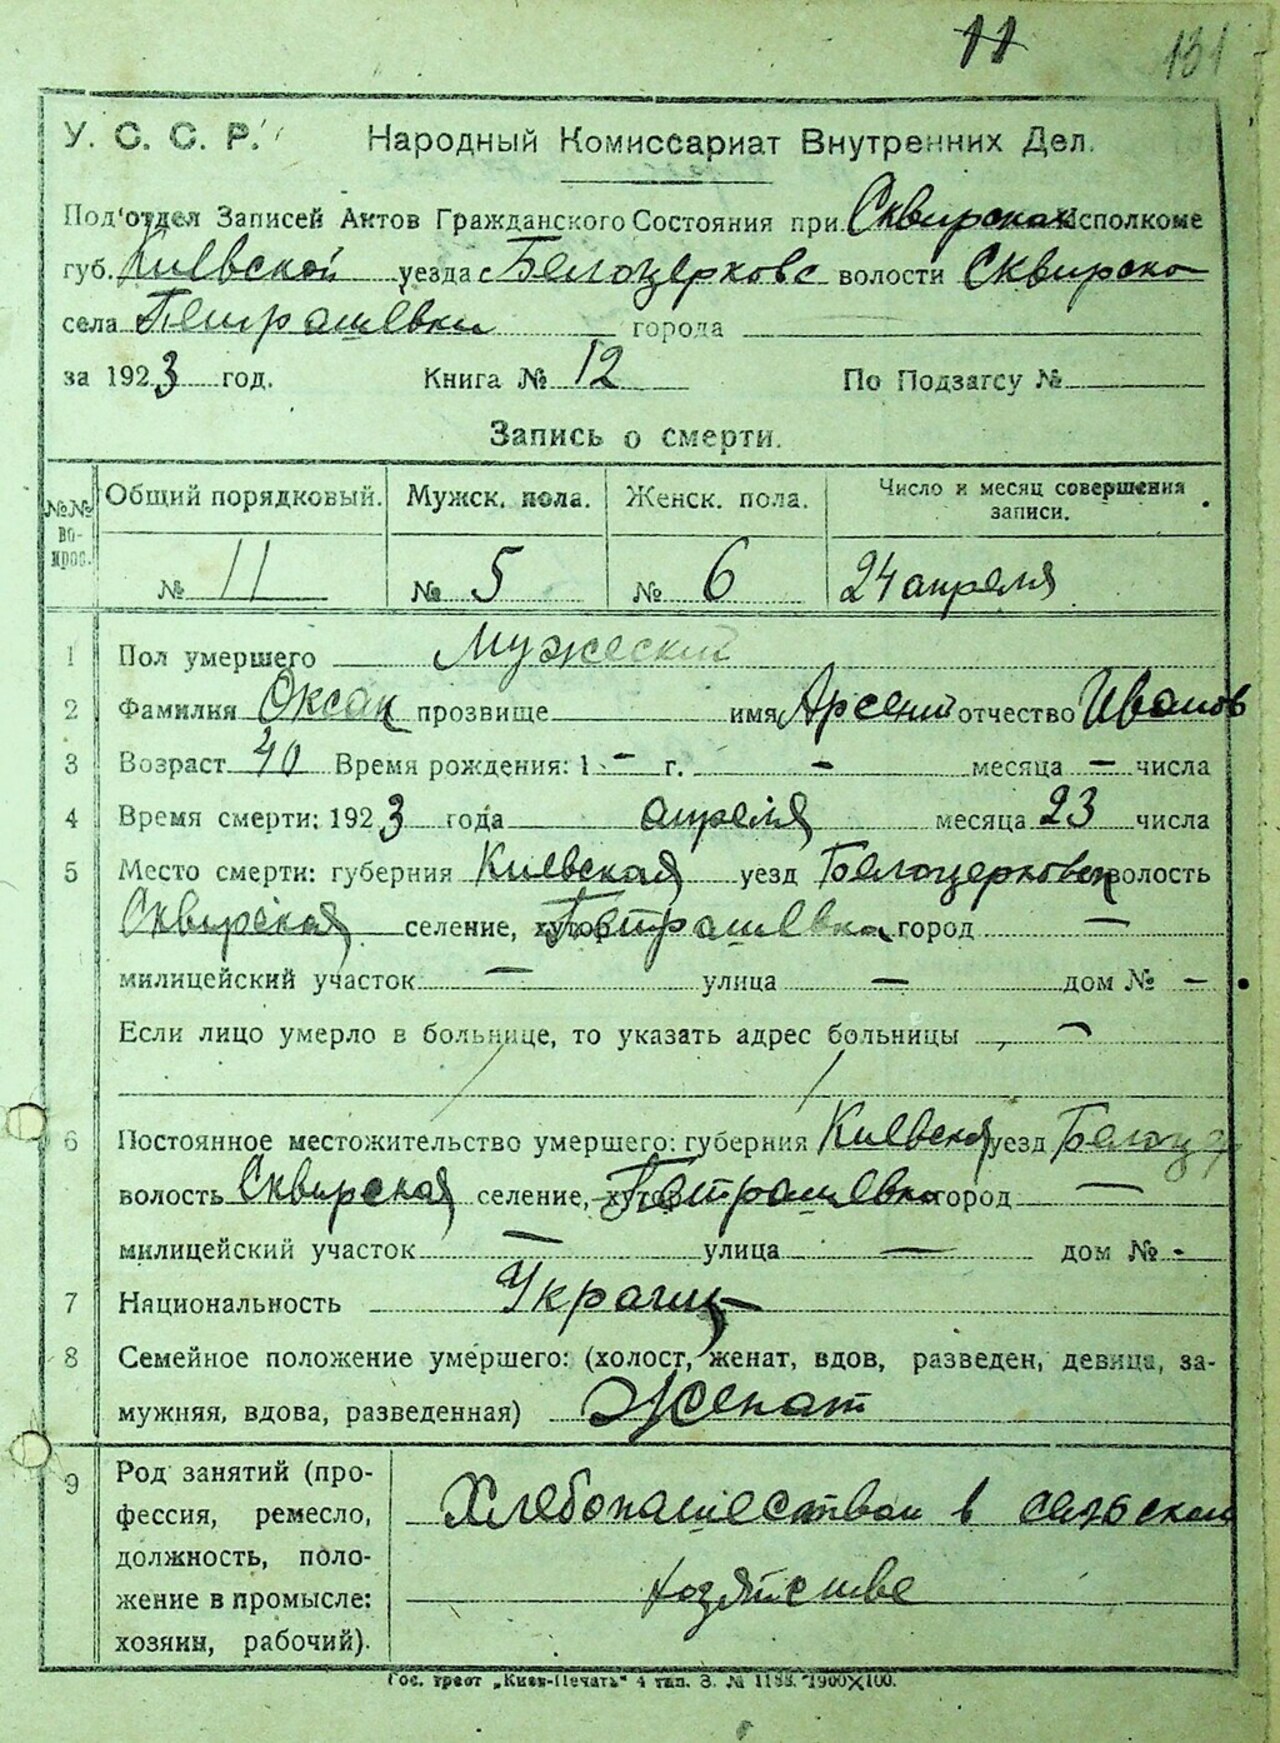 11 131
У. С. С. Р. Народный Комиссариат Внутренних Дел.
Под'отдел Записей Актов Гражданского Состояния при Сквирском Исполкоме
губ. Киевской уезда Белоцерковс волости Сквирско
села Петрашевки города
за 1923 год. Книга № 12 По Подзагсу №
Запись о смерти.
№№ во-прос. Общий порядковый. Мужск. пола. Женск. пола. Число и месяц совершения записи.
№ 11 № 5 № 6 24 апреля
1 Пол умершего Мужеский
2 Фамилия Оксан прозвище имя Арсений отчество Иванов
3 Возраст 40 Время рождения: 1 - г. - месяца - числа
4 Время смерти: 1923 года апреля месяца 23 числа
5 Место смерти: губерния Киевская уезд Белоцерковск волость
Сквирская селение, хутор Петрашевка город —
милицейский участок — улица — дом № —
Если лицо умерло в больнице, то указать адрес больницы —
6 Постоянное местожительство умершего: губерния Киевская уезд Белоцер
волость Сквирская селение, хутор Петрашевка город —
милицейский участок — улица — дом № -
7 Национальность Украинц
8 Семейное положение умершего: (холост, женат, вдов, разведен, девица, за-
мужняя, вдова, разведенная) Женат
9 Род занятий (про-
фессия, ремесло, Хлебопашеством в сельском
должность, поло-
жение в промысле: хозяйстве
хозяин, рабочий).
Гос. трест „Киев-Печать" 4 тип. З. № 1188. 1900×100.